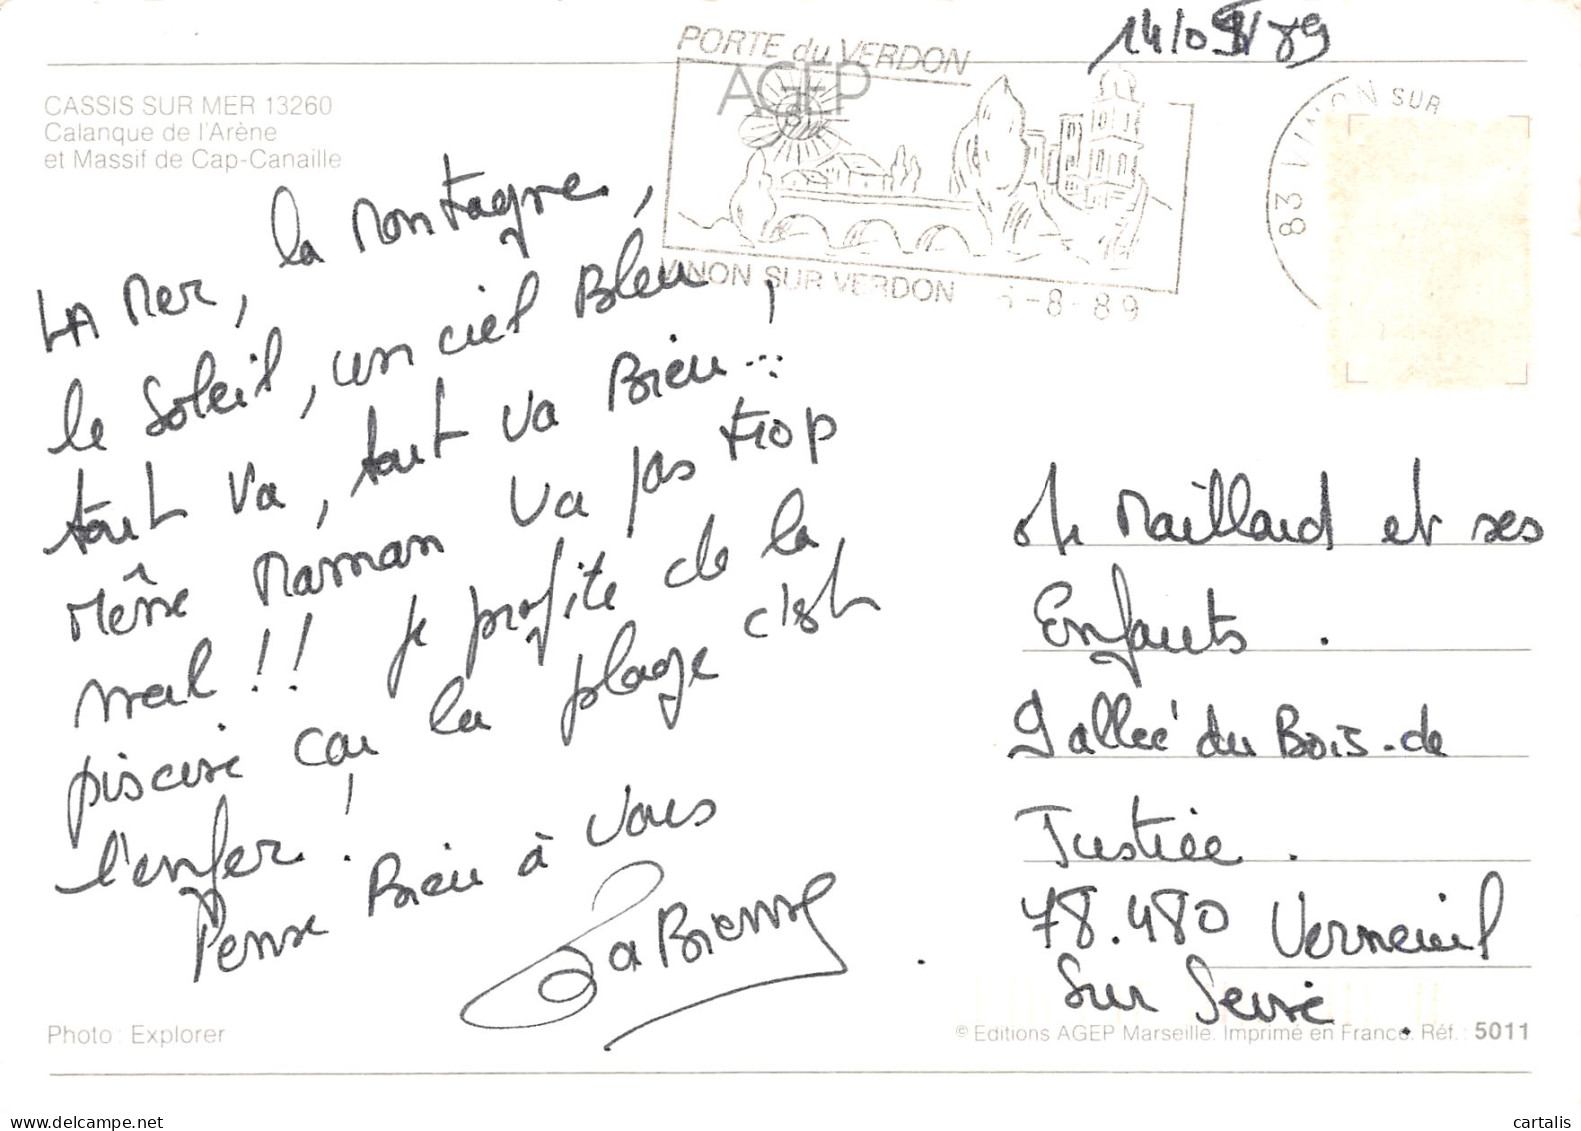 14/08/89
PORTE du VERDON
AGEP
VINON SUR VERDON
-8-89
83 VINON SUR
CASSIS SUR MER 13260
Calanque de l'Arène
et Massif de Cap-Canaille
LA Mer, la Montagne,
le Soleil, un ciel Bleu,
tout va, tout va Bien...
Même Maman va pas trop
mal !! Je profite de la
piscine car la plage c'est
l'enfer !
Pense Bien à vous
Mr Maillard et ses
Enfants.
9 allée du Bois-de
Justice.
78.480 Verneuil
Sur Seine.
Photo : Explorer
© Editions AGEP Marseille. Imprimé en France. Réf. : 5011
delcampe.net
cartalis